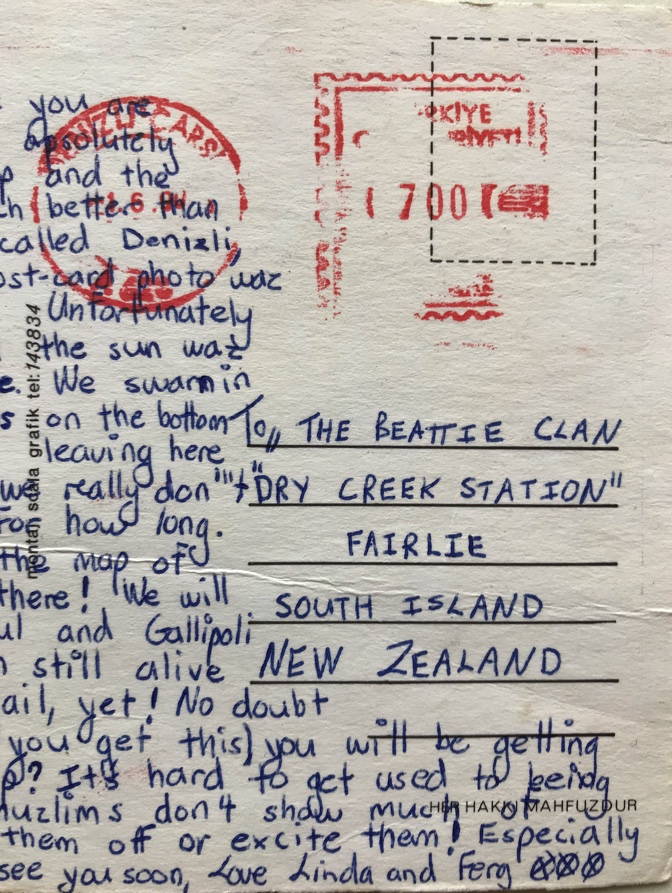 you are
absolutely
and the
better than
called Denizli,
post-card photo waz
Unfortunately
the sun waz
We swam in
on the bottom
leaving here
we really don't
how long.
the map of
there! We will
and Gallipoli
still alive
yet! No doubt
you get this) you will be getting
It's hard to get used to being
muzlims don't show much of
them off or excite them! Especially
see you soon, Love Linda and Ferg
DENİZLİ ÇARŞI
TÜRKİYE
700
tel:143834
grafik
To,, THE BEATTIE CLAN
"DRY CREEK STATION"
FAIRLIE
SOUTH ISLAND
NEW ZEALAND
HER HAKKI MAHFUZDUR